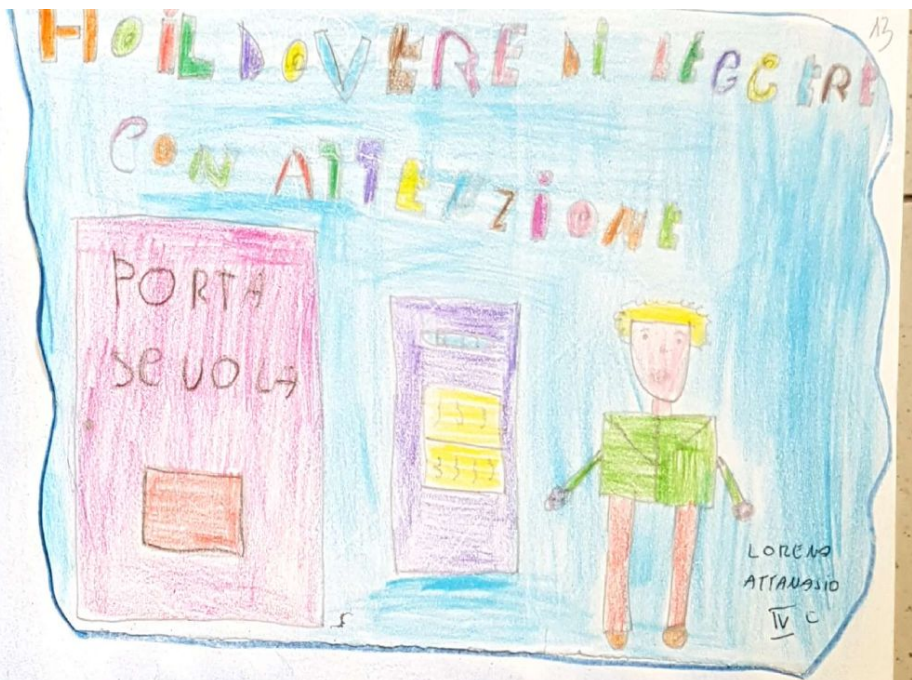 13
HO IL DOVERE DI LEGGERE
CON ATTENZIONE
PORTA
SCUOLA
LORENO
ATTANASIO
IV C